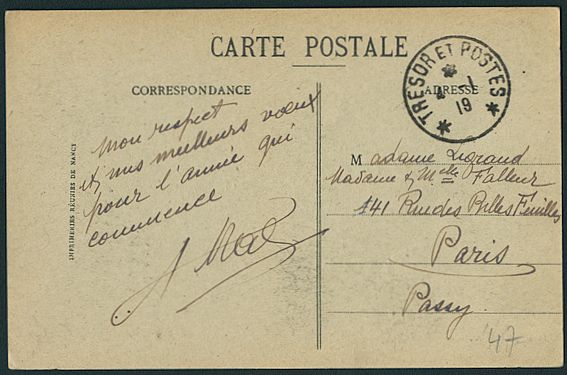 CARTE POSTALE
CORRESPONDANCE
ADRESSE
TRESOR ET POSTES
* 1
19
Mon respect
et mes meilleurs voeux
pour l'année qui
commence
Madame Legrand
Madame & Melle Falleur
141 Rue des Belles Feuilles
Paris
Passy
47
IMPRIMERIES RÉUNIES DE NANCY